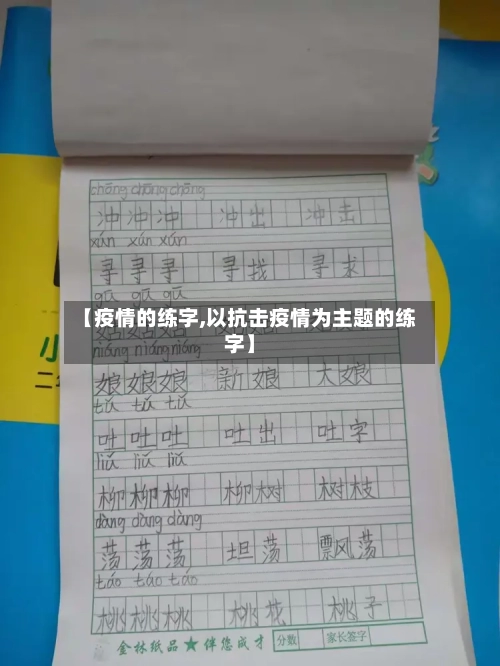 chōng chōng chōng
冲 冲 冲 冲 出 冲 击
xún xún xún
寻 寻 寻 寻 找 寻 求
gū gū gū
【疫情的练字,以抗击疫情为主题的练
字】
niáng niáng niáng
娘 娘 娘 新 娘 大 娘
tǔ tǔ tǔ
吐 吐 吐 吐 出 吐 字
liǔ liǔ liǔ
柳 柳 柳 柳 树 树 枝
dàng dàng dàng
荡 荡 荡 坦 荡 飘 荡
táo táo táo
桃 桃 桃 桃 花 桃 子
金林纸品★伴您成才 分数 家长签字
小
二